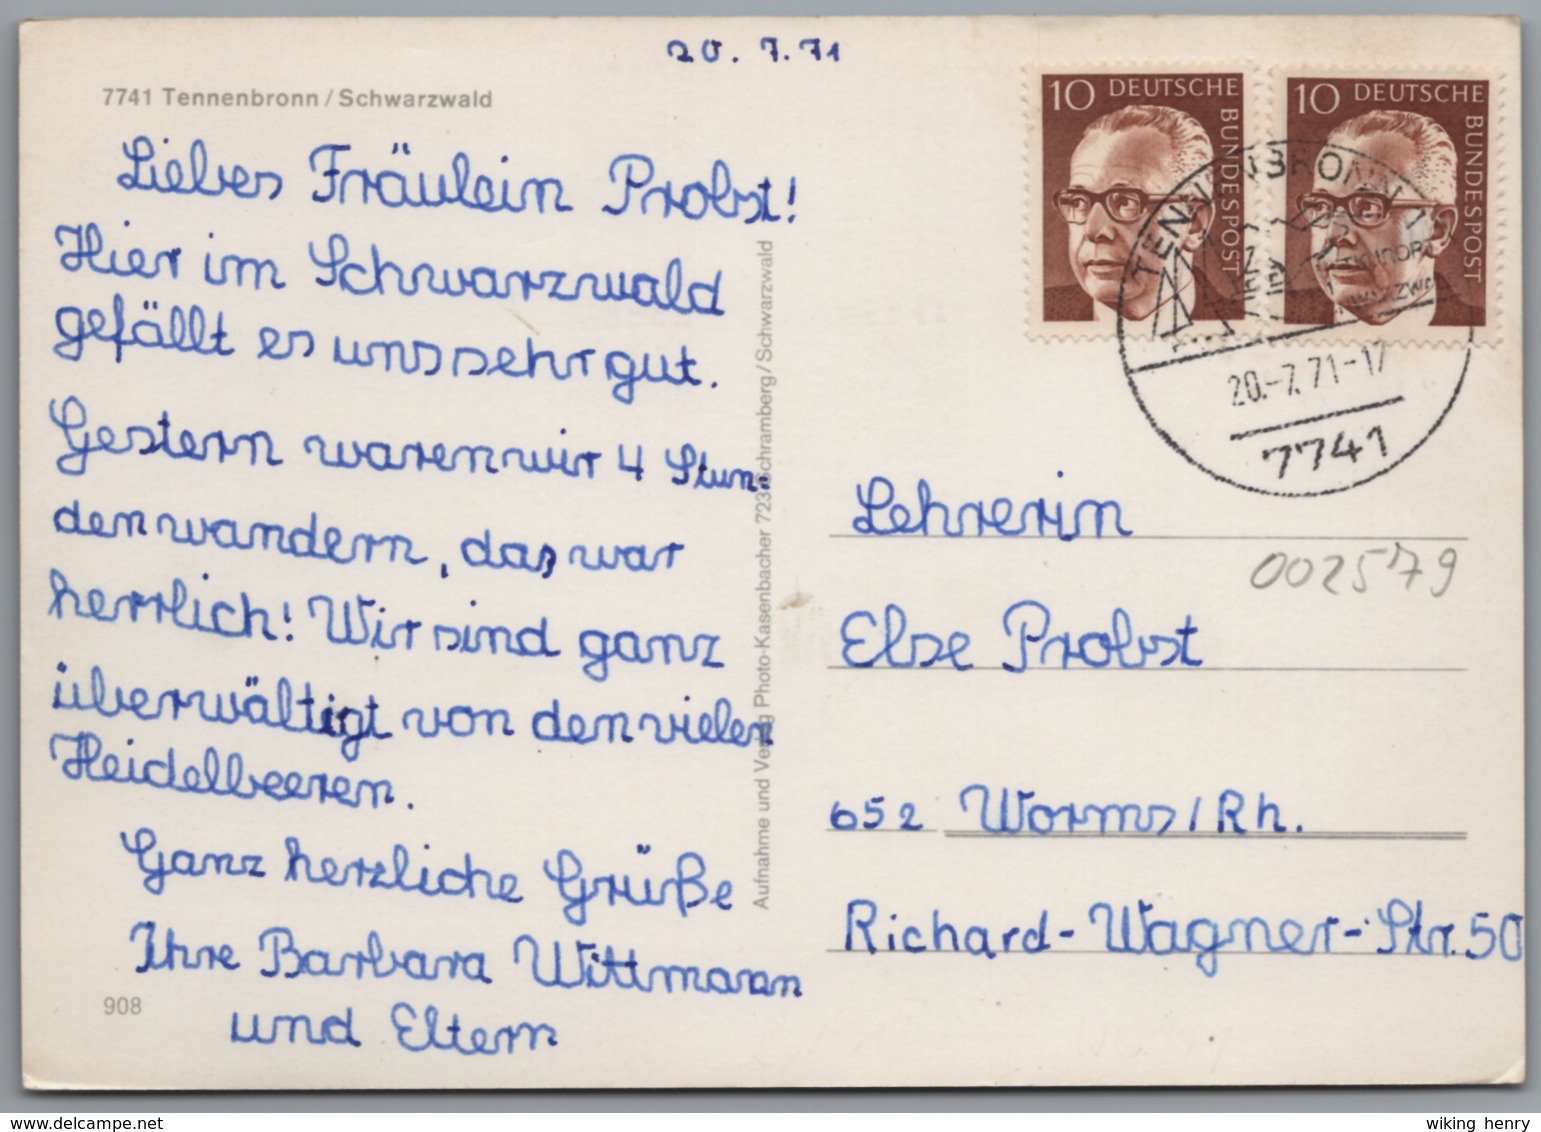 20. 7. 71
7741 Tennenbronn / Schwarzwald
Liebes Fräulein Probst!
Hier im Schwarzwald
gefällt es uns sehr gut.
Gestern waren wir 4 Stun-
den wandern, das war
herrlich! Wir sind ganz
überwältigt von den vielen
Heidelbeeren.
Ganz herzliche Grüße
Ihre Barbara Wittmann
und Eltern
908
Aufnahme und Verlag Photo-Kasenbacher 723 Schramberg / Schwarzwald
10 DEUTSCHE BUNDESPOST
10 DEUTSCHE BUNDESPOST
TENNENBRONN 1
20.-7. 71-17
7741
Lehrerin
002579
Else Probst
652 Worms / Rh.
Richard-Wagner-Str. 50
wiking henry